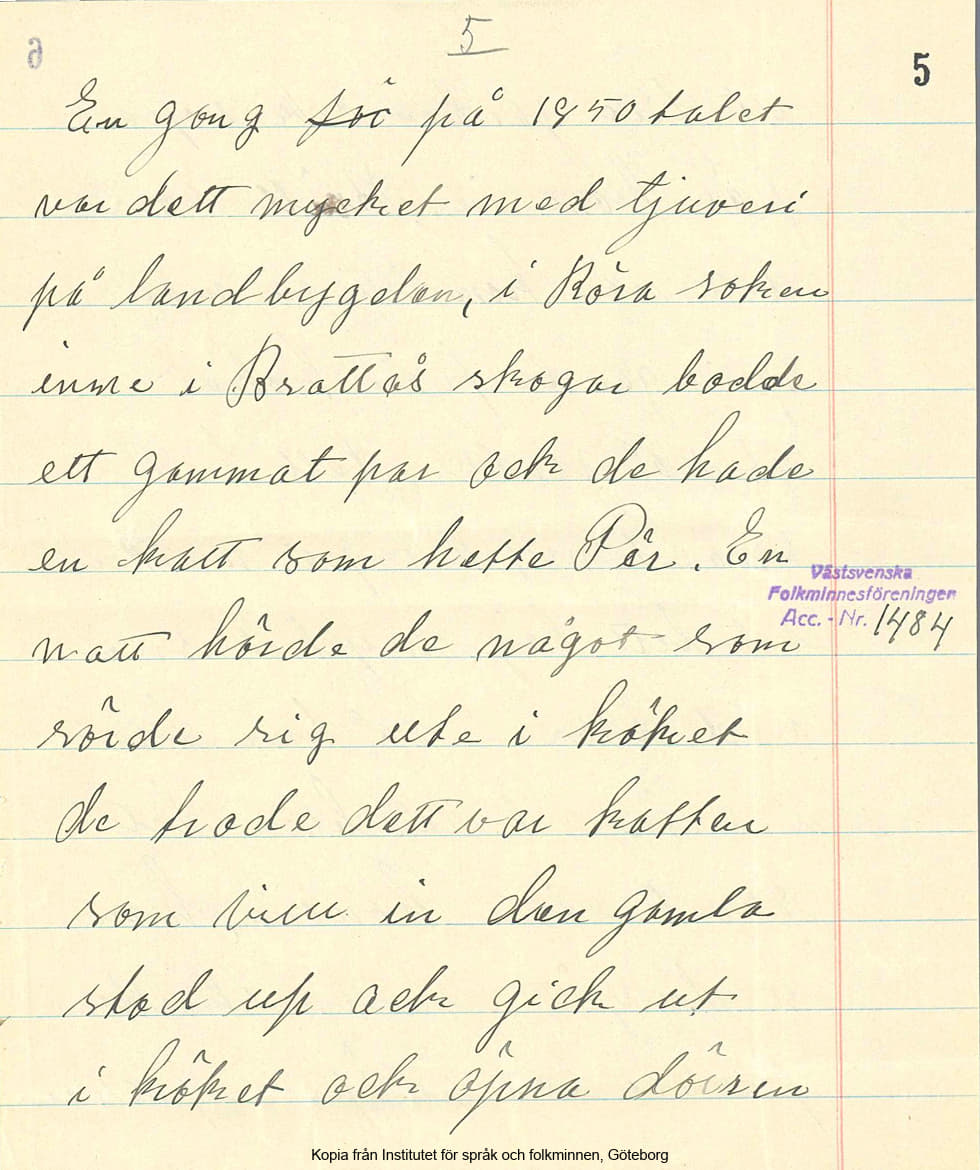 5
5
En gong för på 1850 talet
var dett mycket med tjuveri
på landbygden, i Röra soken
inne i Brattås skogar bodde
ett gammat par ock de hade
en katt som hette Pär. En
Västsvenska
Folkminnesföreningen
Acc. - Nr. 1484
natt hörde de något som
rörde sig ute i köket
de trode dett var katten
som vill in den gamla
stod up ock gick ut
i köket ock öpna dörren
Kopia från Institutet för språk och folkminnen, Göteborg